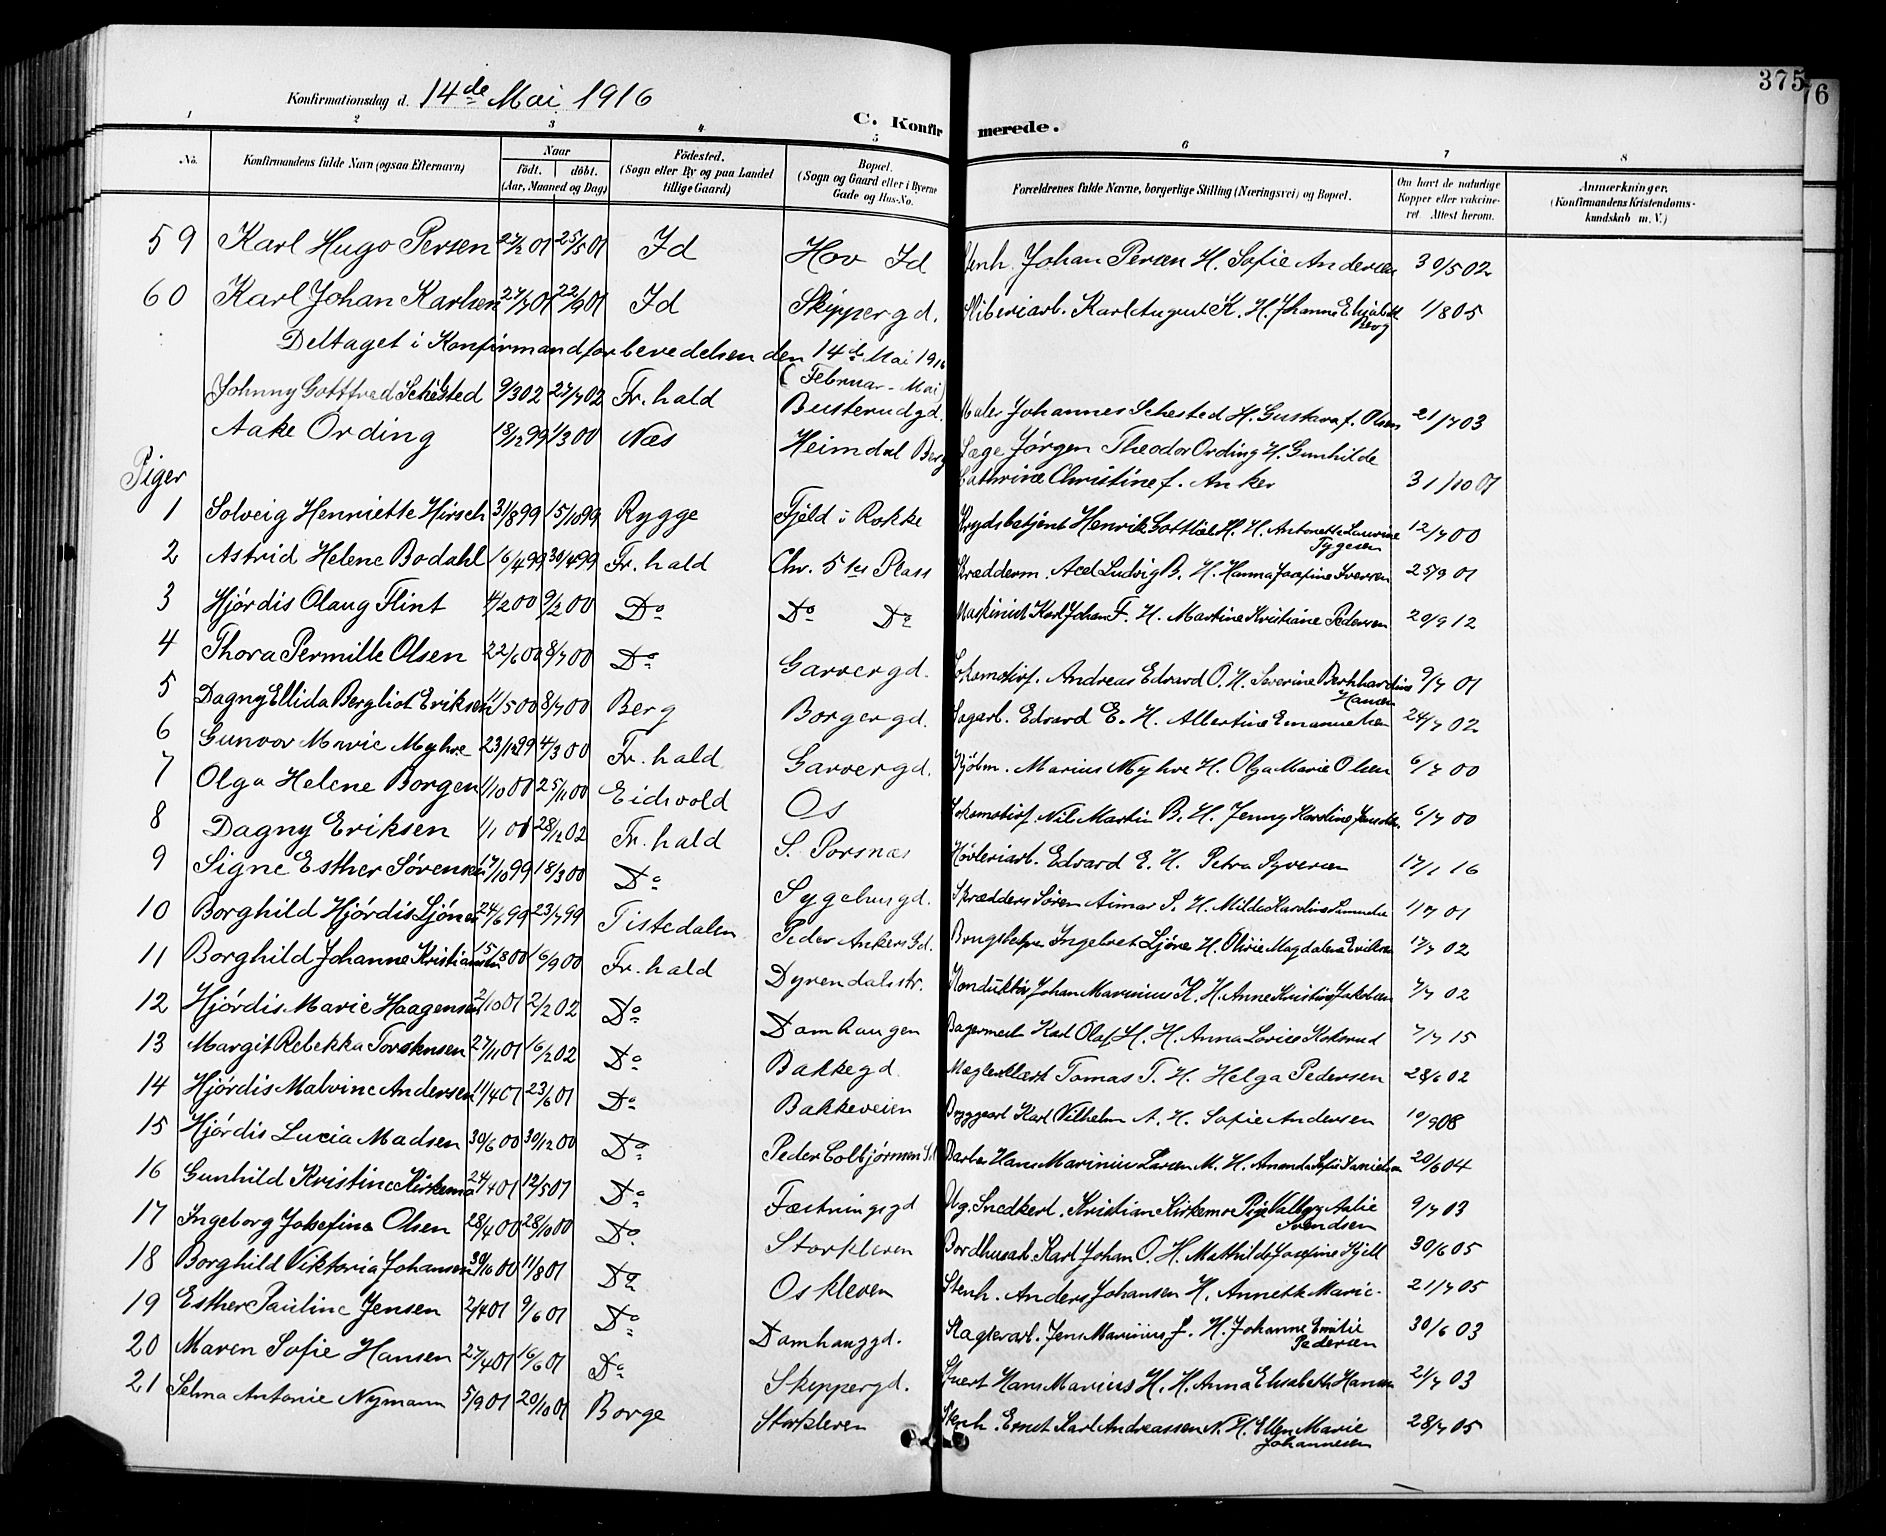 375
76
Konfirmationsdag d. 14de Mai 1916
C. Konfirmerede.
1 2 3 4 5 6 7 8
No. Konfirmandens fulde Navn (ogsaa Efternavn) Naar født. døbt. (Aar, Maaned og Dag) Födested. (Sogn eller By og paa Landet tillige Gaard) Bopæl. (Sogn og Gaard eller i Byerne Gade og Hus-No. Forældrenes fulde Navne, borgerlige Stilling (Næringsvei) og Bopæl. Om havt de naturlige Kopper eller vaccineret. Attest herom. Anmærkninger. (Konfirmandens Kristendomskundskab m. V.)
59 Karl Hugo Persen 27/2 01 25/5 01 Id Hov Id Stenh. Johan Persen H. Sofie Andersen 30/5 02
60 Karl Johan Karlsen 27/7 01 22/9 01 Id Skippergd. Sliberiarb. Karl August K. H. Johanne Elisabeth Berg 1/8 05
Deltaget i Konfirmandforberedelsen den 14de Mai 1916
(Februar - Mai)
Johnny Gottfred Schested 9/3 02 27/7 02 Fr.hald Busterudgd. Maler Johannes Schested H. Gustava f. Olsen 21/7 03
Aake Ording 18/12 99 1/3 00 Næs Heimdal Berg Læge Jørgen Theodor Ording H. Gunhilde
Cathrine Christine f. Anker 31/10 01
Piger
1 Solveig Henriette Hirsch 31/8 99 15/10 99 Rygge Fjeld i Rokke Krydsbetjent Henrik Gottlieb H. H. Antonette Laurine Tygesen 12/7 00
2 Astrid Helene Bodahl 16/4 99 30/4 99 Fr.hald Chr. 5tes Plass Skrædderm. Axel Ludvig B. H. Hanna Josefine Iversen 25/9 01
3 Hjørdis Olaug Flint 4/2 00 9/2 00 Do Do Do Maskinist Karl Johan F. H. Martine Kristiane Pedersen 20/9 12
4 Thora Pernille Olsen 22/6 00 8/7 00 Do Garvergd. Lokomotivf. Andreas Edvard O. H. Severine Bernhardine Hansen 9/7 01
5 Dagny Ellida Bergliot Eriksen 11/5 00 8/7 00 Berg Borgergd. Sagarb. Edvard E. H. Albertine Emanuelsen 24/7 02
6 Gunvor Marie Myhre 23/12 99 4/3 00 Fr.hald Garvergd. Kjøbm. Marius Myhre H. Olga Marie Olsen 6/7 00
7 Olga Helene Borgen 1/10 00 25/11 00 Eidsvold Os Lokomotivf. Nil Martin B. H. Jenny Hardine 6/7 00
8 Dagny Eriksen 1/1 01 28/12 02 Fr.hald S. Porsnæs Høvleriarb. Edvard E. H. Petra Syversen 17/1 16
9 Signe Esther Sørensen 17/10 99 18/3 00 Do Sygehusgd. Skrædders. Søren Aimar S. H. Milda Karoline 1/7 01
10 Borghild Hjørdis Ljøner 24/6 99 23/7 99 Tistedalen Peder Ankers Gd. Brugsbestyrer Ingebret Ljøne H. Olivie Magdalena Eriksen 17/7 02
11 Borghild Johanne Kristiansen 15/8 00 16/9 00 Fr.hald Dyrendalsstr. Konduktør Johan Marinius K. H. Anne Kristine Jakobsen 7/7 02
12 Hjørdis Marie Haagensen 2/10 01 2/2 02 Do Damhaugen Bagermest. Karl Olaf H. H. Anna Lovise Koksrud 7/7 15
13 Margit Rebekka Torstensen 27/11 01 16/2 02 Do Bakkegd. Tomas T. H. Helga Pedersen 28/6 02
14 Hjørdis Malvine Andersen 11/4 01 23/6 01 Do Bakkeveien Bryggearb. Karl Vilhelm A. H. Sofie Andersen 10/9 08
15 Hjørdis Lucia Madsen 30/6 00 30/12 00 Do Peder Colbjørnsen St. Barber Hans Marinius Larsen M. H. Amanda Sofie Danielsen 20/6 04
16 Gunhild Kristine Kirkemo 24/4 01 12/5 01 Do Fæstningsgd Ug. Snedkerl. Kristian Kirkemo Pige Valborg Aalie Svendsen 9/7 03
17 Ingeborg Josefine Olsen 28/4 00 28/10 00 Do Storkleven Bordhusarb. Karl Johan O. H. Mathilde Josefine Kjell 30/6 05
18 Borghild Viktoria Johansen 30/10 00 11/8 01 Do Oskleven Stenh. Anders Johansen H. Annette Marie 21/7 05
19 Esther Pauline Jensen 2/4 01 9/6 01 Do Damhauggd. Slagteriarb. Jens Marinius J. H. Johanne Emilie Pedersen 30/6 03
20 Maren Sofie Hansen 27/4 01 16/6 01 Do Skippergd. Stuert Hans Marius H. H. Anna Elisabeth Hansen 21/7 03
21 Selma Antonie Nymann 5/9 01 20/10 01 Borge Storkleven Stenh. Ernst Karl Andreassen N. H. Ellen Marie Johannesen 28/7 05